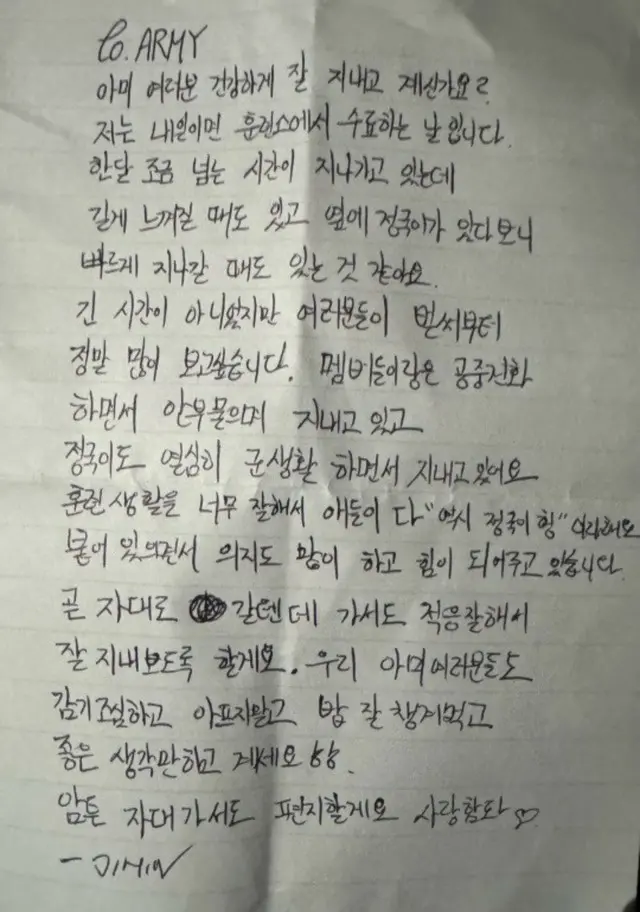 to. ARMY
아미 여러분 건강하게 잘 지내고 계신가요?
저는 내일이면 훈련소에서 수료하는 날 입니다.
한달 조금 넘는 시간이 지나가고 있는데
길게 느껴질 때도 있고 옆에 정국이가 있다보니
빠르게 지나갈 때도 있는 것 같아요.
긴 시간이 아니였지만 여러분들이 벌써부터
정말 많이 보고싶습니다. 멤버들이랑은 공중전화
하면서 안부물으며 지내고 있고
정국이도 열심히 군생활 하면서 지내고있어요
훈련 생활을 너무 잘해서 애들이 다 "역시 정국이 형" 이라해요
붙어 있으면서 의지도 많이 하고 힘이 되어주고 있습니다.
곧 자대로 갈텐데 가서도 적응잘해서
잘 지내보도록 할게요. 우리 아미여러분들도
감기조심하고 아프지말고 밥 잘 챙겨먹고
좋은 생각만하고 계세요 ㅎㅎ.
암튼 자대가서도 편지할게요 사랑함돠♡
- JIMIN